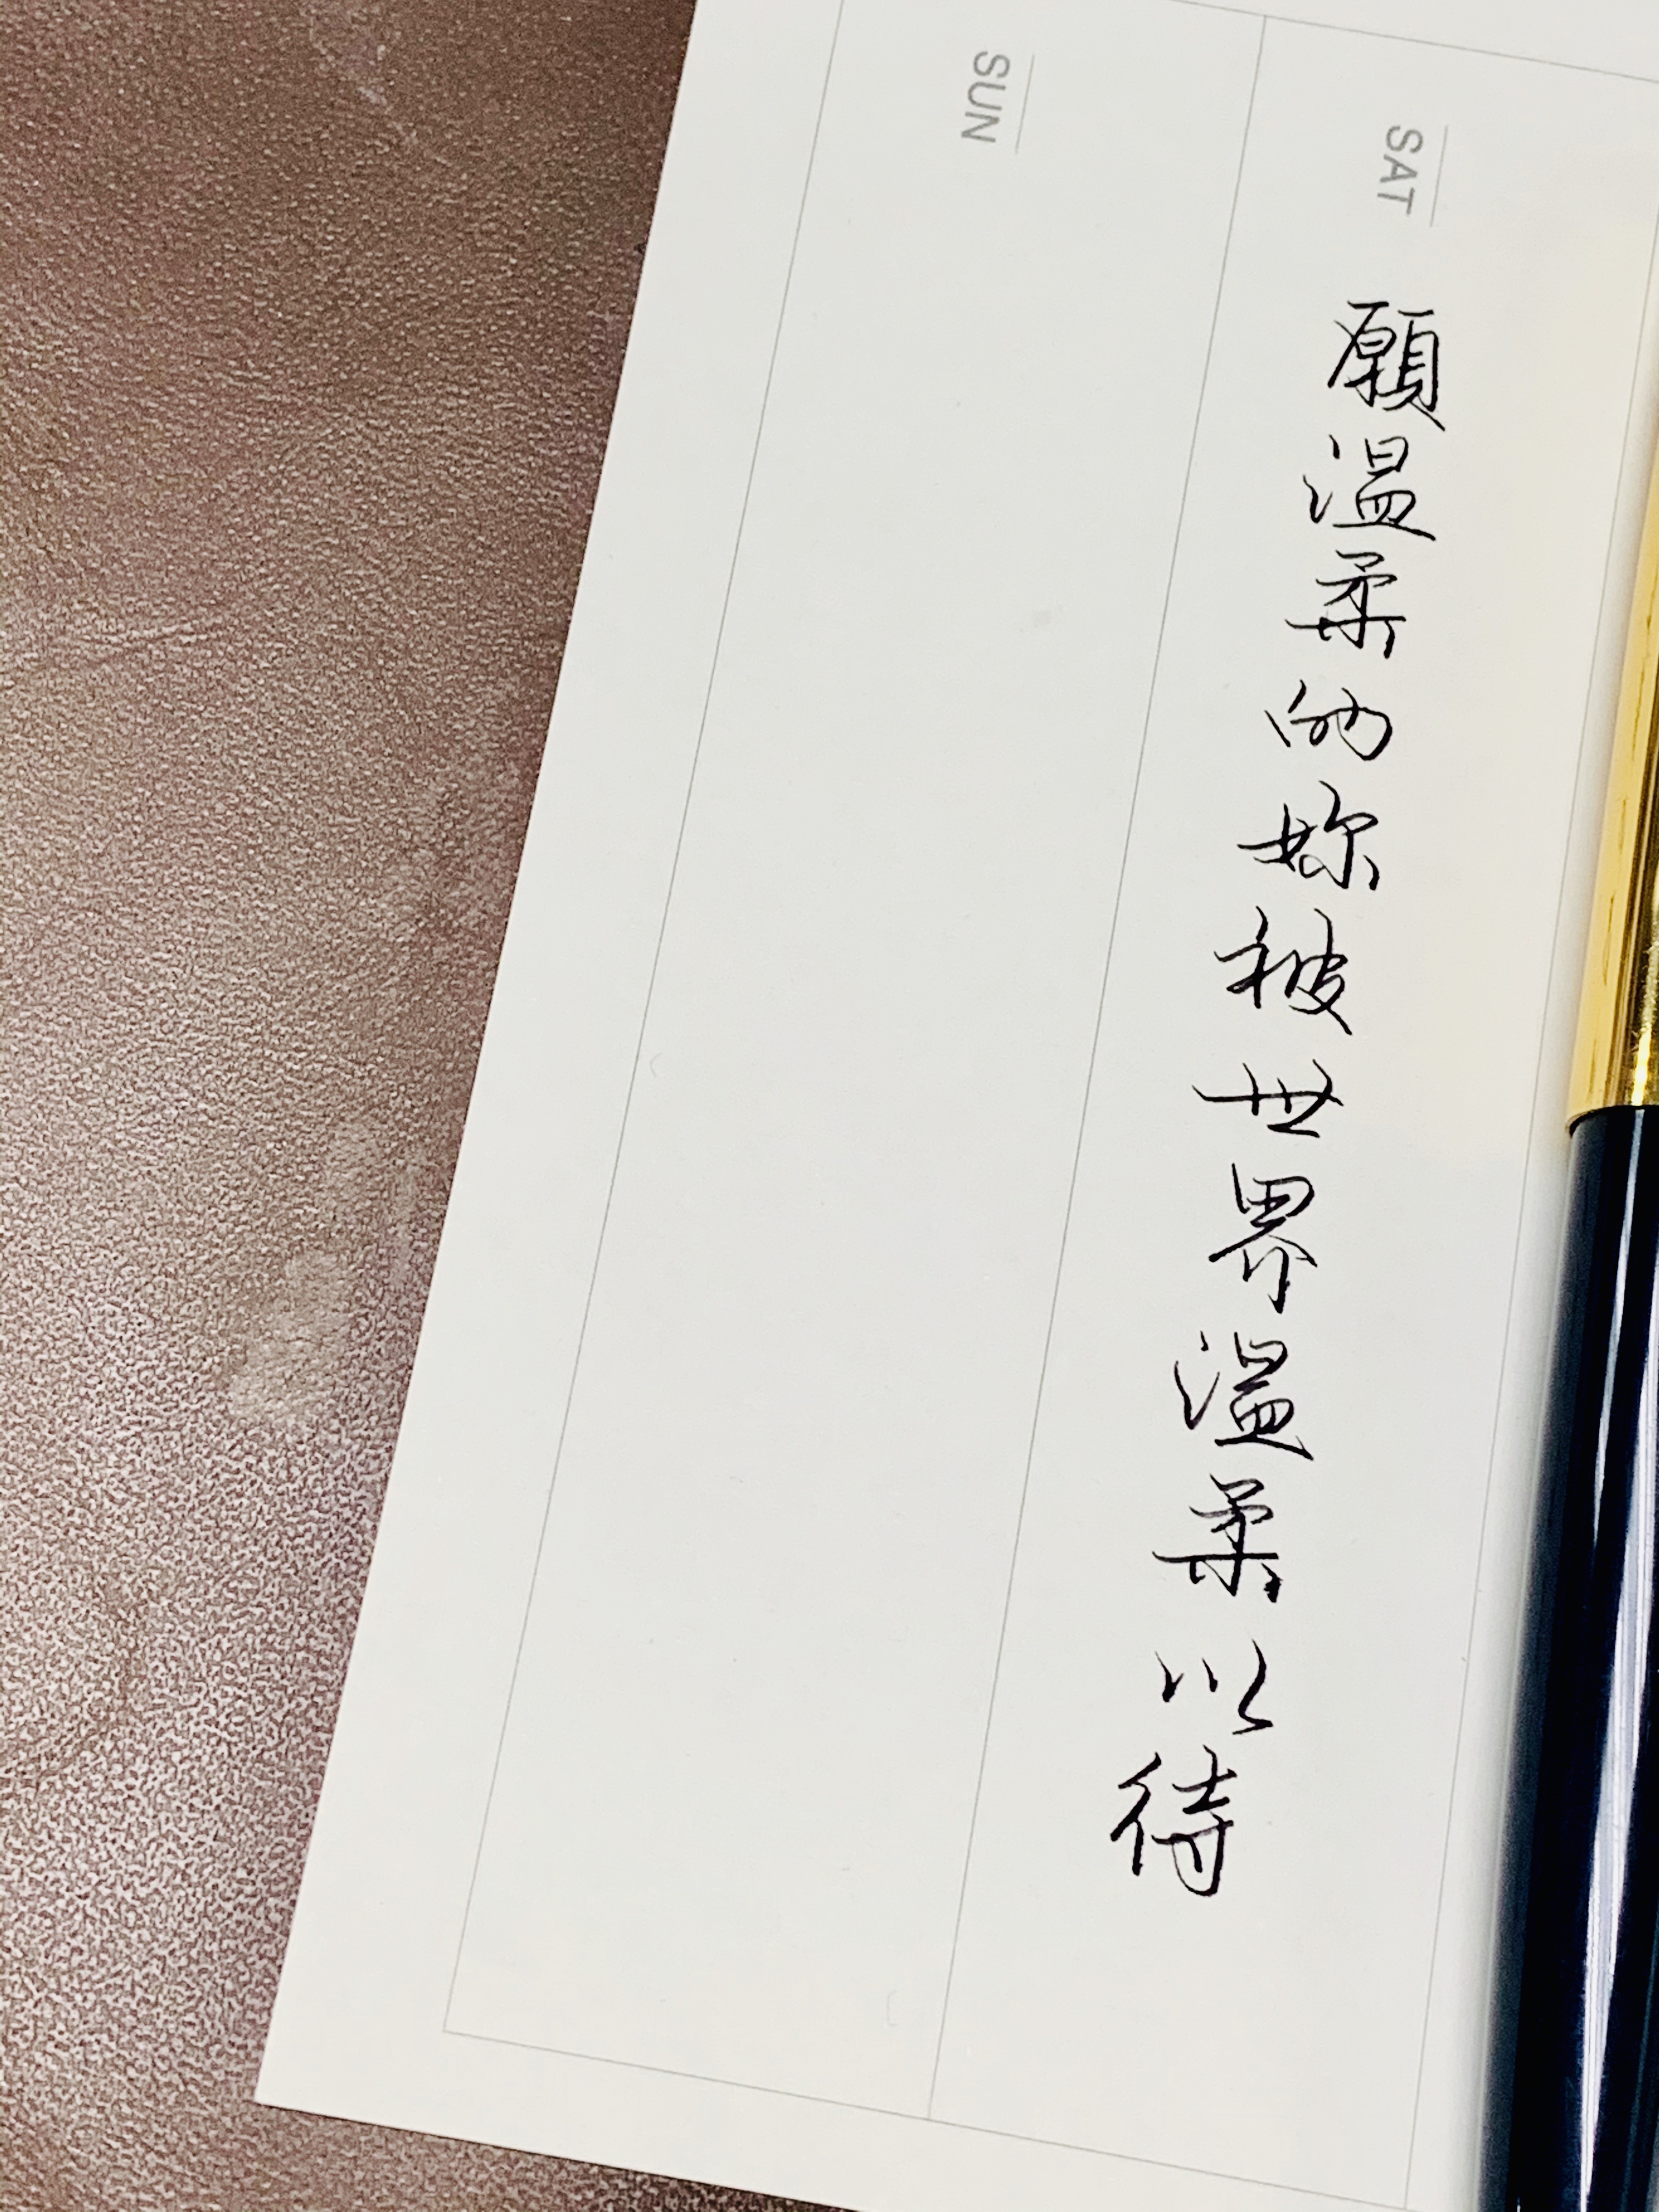 SAT
願溫柔的妳被世界溫柔以待
SUN